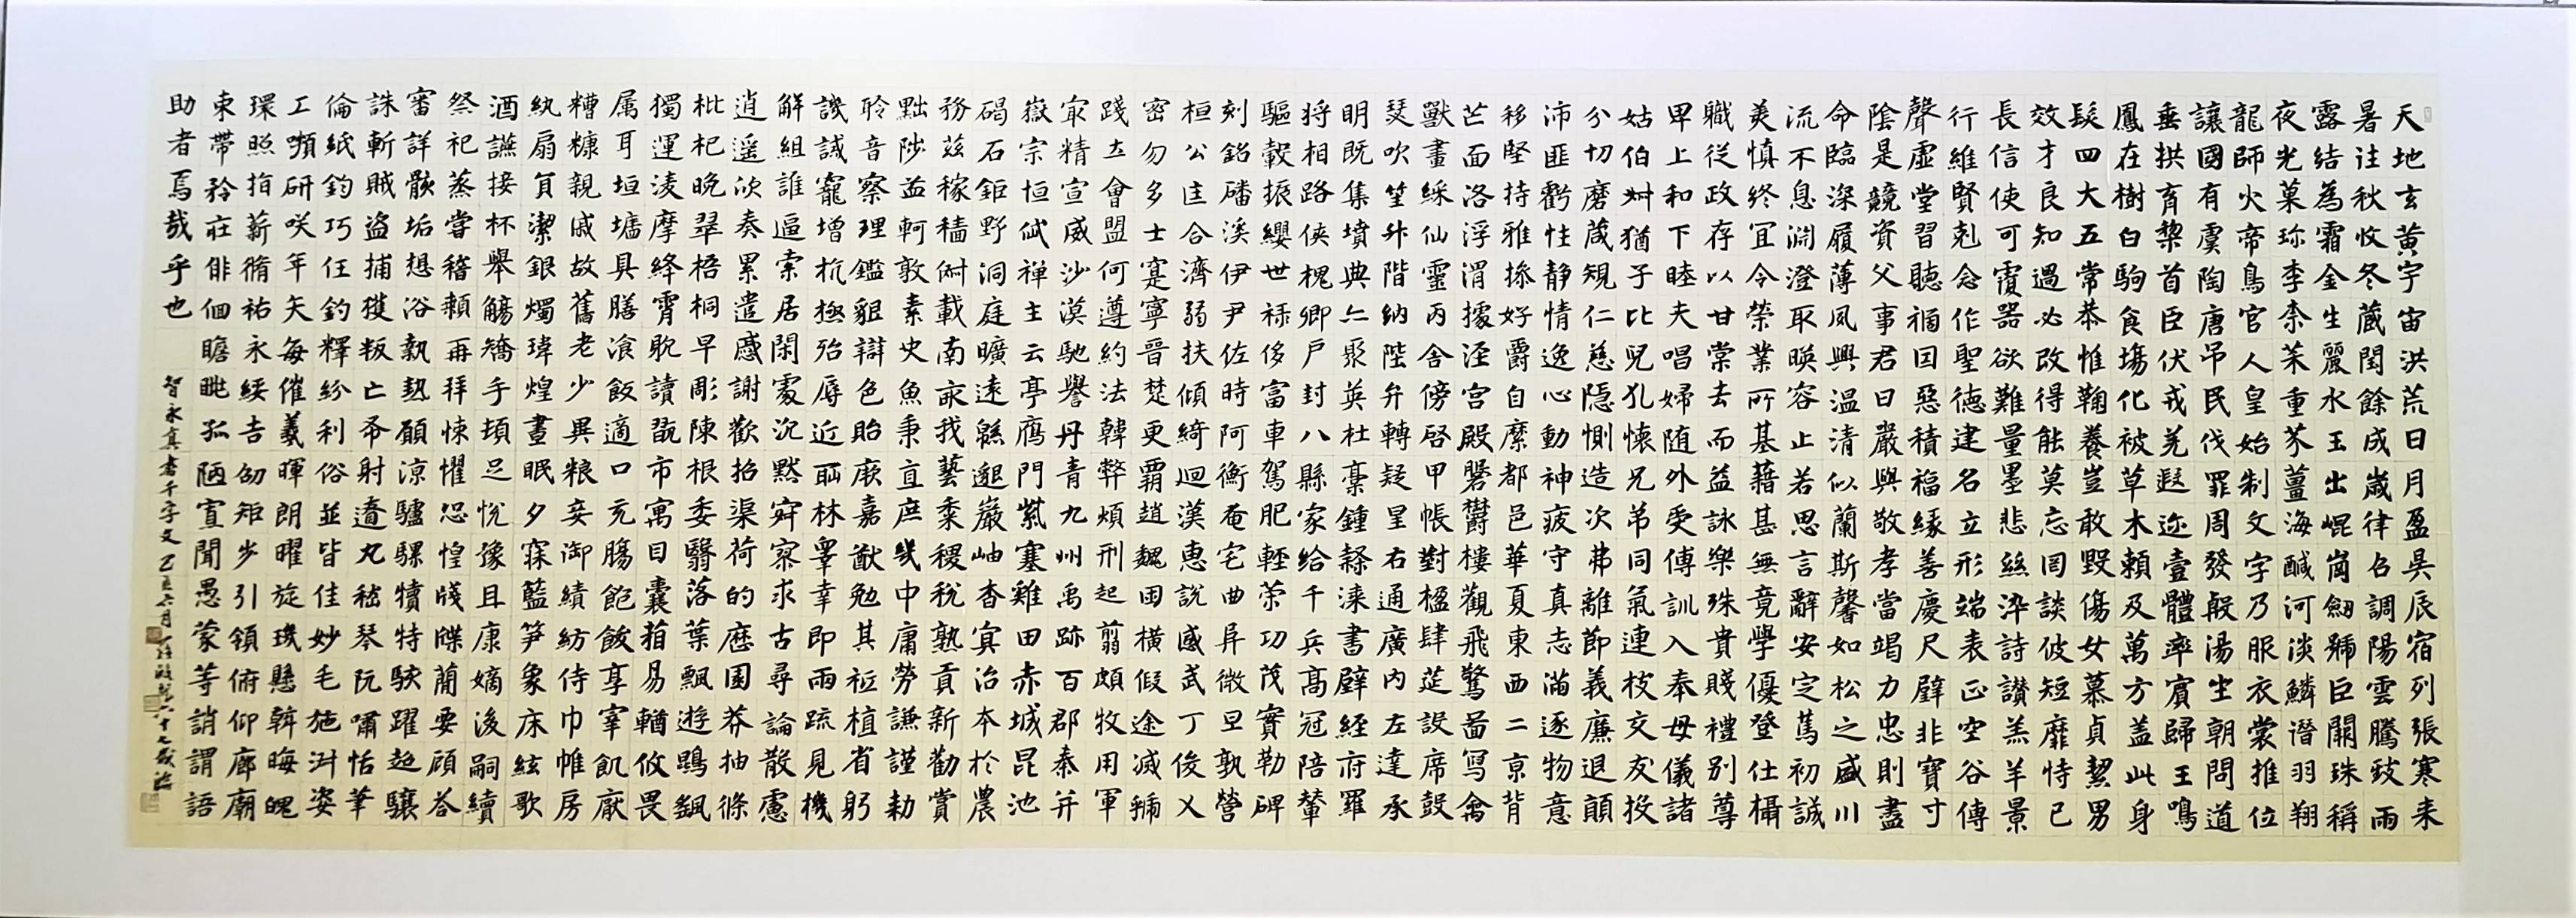 天地玄黄宇宙洪荒日月盈昃辰宿列張寒来
暑往秋收冬蔵閏餘成歳律吕調陽雲騰致雨
露結為霜金生麗水玉出崐崗劒號巨闕珠稱
夜光菓珎李柰菜重芥薑海醎河淡鱗潛羽翔
龍師火帝鳥官人皇始制文字乃服衣裳推位
讓國有虞陶唐弔民伐罪周發殷湯坐朝問道
垂拱育黎首臣伏戎羌遐迩壹體率賓歸王鳴
鳳在樹白駒食場化被草木賴及萬方盖此身
髮四大五常恭惟鞠養豈敢毀傷女慕貞絜男
效才良知過必改得能莫忘罔談彼短靡恃己
長信使可覆器欲難量墨悲絲淬詩讃羔羊景
行維賢剋念作聖德建名立形端表正空谷傳
聲虛堂習聽禍因惡積福緣善慶尺璧非寶寸
陰是競資父事君曰嚴與敬孝當竭力忠則盡
命臨深履薄夙興温清似蘭斯馨如松之盛川
流不息淵澄取暎容止若思言辭安定篤初誠
美慎終宜令榮業所基藉甚無竟學優登仕攝
職從政存以甘棠去而益詠樂殊貴賤禮別尊
卑上和下睦夫唱婦随外受傅訓入奉母儀諸
姑伯叔猶子比兒孔懷兄弟同氣連枝交友投
分切磨箴規仁慈隱惻造次弗離節義廉退顛
沛匪虧性静情逸心動神疲守真志滿逐物意
移堅持雅操好爵自縻都邑華夏東西二京背
芒面洛浮渭據涇宮殿磐鬱樓觀飛驚啚寫禽
獸畫綵仙靈丙舍傍啓甲帳對楹肆筵設席鼓
瑟吹笙升階納陛弁轉疑星右通廣內左達承
明既集墳典亦聚英杜稾鍾隸漆書壁經府羅
將相路俠槐卿戶封八縣家給千兵高冠陪輦
驅轂振纓世祿侈富車駕肥輕策功茂實勒碑
刻銘磻溪伊尹佐時阿衡奄宅曲阜微旦孰營
桓公匡合濟弱扶傾綺迴漢惠說感武丁俊乂
密勿多士寔寧晉楚更霸趙魏困橫假途滅虢
踐土會盟何遵約法韓弊煩刑起翦頗牧用軍
最精宣威沙漠馳譽丹青九州禹跡百郡秦并
嶽宗恒岱禅主云亭鴈門紫塞雞田赤城昆池
碣石鉅野洞庭曠遠緜邈巖岫杳冥治本於農
務茲稼穡俶載南畝我藝黍稷稅熟貢新勸賞
黜陟孟軻敦素史魚秉直庶幾中庸勞謙謹勑
聆音察理鑑貌辯色貽厥嘉猷勉其祗植省躬
譏誡寵增抗極殆辱近恥林皋幸即兩疏見機
解組誰逼索居閑處沉默寂寥求古尋論散慮
逍遥欣奏累遣慼謝歡招渠荷的歷園莽抽條
枇杷晚翠梧桐早彫陳根委翳落葉飄遊鵾飖
獨運淩摩絳霄耽讀翫市寓目囊箱易輶攸畏
属耳垣墻具膳飡飯適口充腸飽飫享宰飢厭
糟糠親戚故舊老少異粮妾御績紡侍巾帷房
紈扇員潔銀燭煒煌晝眠夕寐籃笋象床絃歌
酒讌接杯舉觴矯手頓足悅豫且康嫡後嗣續
祭祀蒸嘗稽顙再拜悚懼恐惶牋牒簡要顧答
審詳骸垢想浴執熱願涼驢騾犢特駭躍超驤
誅斬賊盗捕獲叛亡布射遼丸嵇琴阮嘯恬筆
倫紙鈞巧任釣釋紛利俗並皆佳妙毛施淑姿
工嚬研咲年矢每催羲暉朗曜旋璣懸斡晦魄
環照指薪脩祐永綏吉劭矩步引領俯仰廊廟
束帶矜莊俳佪瞻眺孤陋寡聞愚蒙等誚謂語
助者焉哉乎也
智永真書千字文 己亥六月 六十七歲臨